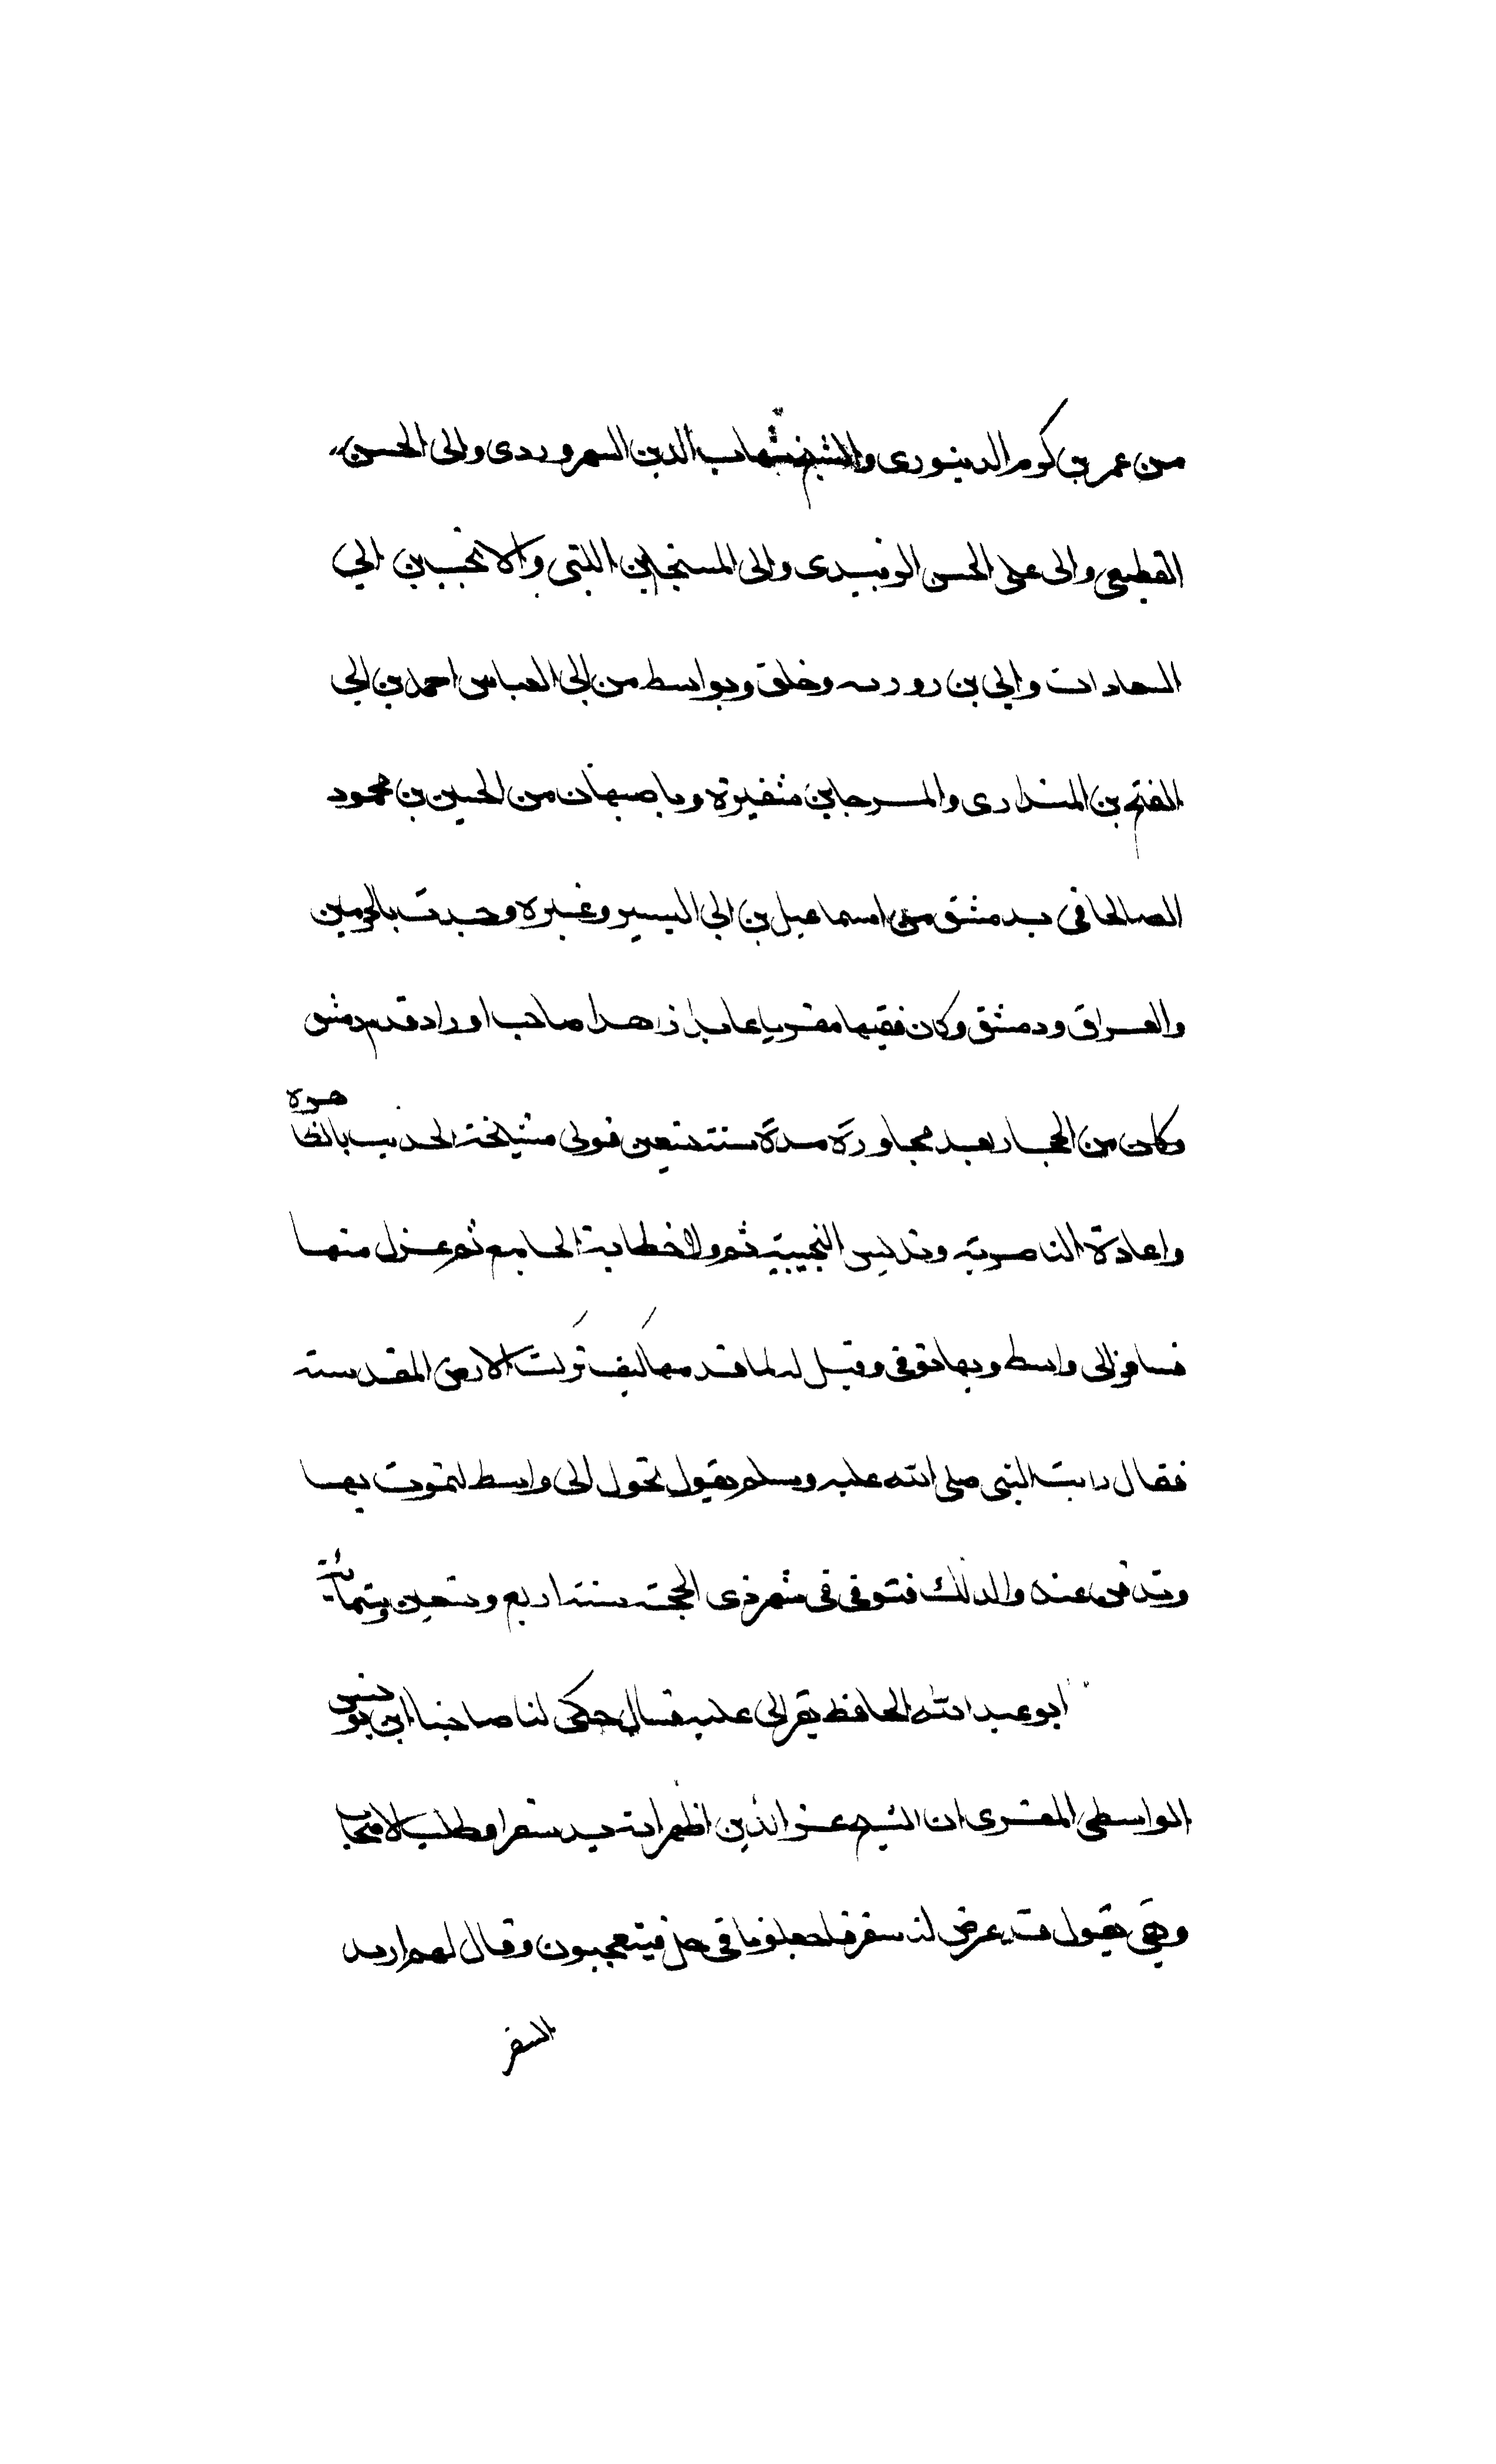 من عمر بن كرم الدينورى والشيخ شهاب الدين السهروردى وابى الحسن
القطيعى وابى على الحسن الزبيدى وابى المنجا بن اللتى والانجب بن ابي
السعادات وابي بن روزبه وخلق وبواسط من ابى العباس احمد بن ابى
الفتح بن المندارى والمرجا بن شقيرة وباصبهان من الحسين بن محمود
الصالحانى بدمشق من اسماعيل بن ابى اليسير وغيره وحدت بالحرمين
والعراق ودمشق وكان فقيها مقريا عابدا زاهدا صاحب اوراد قدم دمشق
وكان من الحجاز بعد مجاورة مدة سنة تسعين فولى مشيخة الحديث بالظاهرة
واعادة الناصرية وتدريس النجيبية ثم ولا خطابة الجامع ثم عزل منها
فسافر الى واسط وبها توفى وقيل له لما قدمها كيف تركت الارض المقدسة
فقال رايت النبى صلى الله عليه وسلم يقول تحول الى واسط لتموت بها
وتدفن عند والدك فتوفى فى شهر ذى الحجة سنة اربع وتسعين وستمائة
ابو عبد الله الحافظ يقرائى عليه قال حكى لنا صاحبنا ابن يونس
الواسطى المقرى ان الشيخ عز الدين اظهر انه يريد سفرا وطلب الاصحاب
وهى يقول قد عرض لنا سفر فاجعلونا فى حل فيتعجبون وقال لهم اريد
السفر